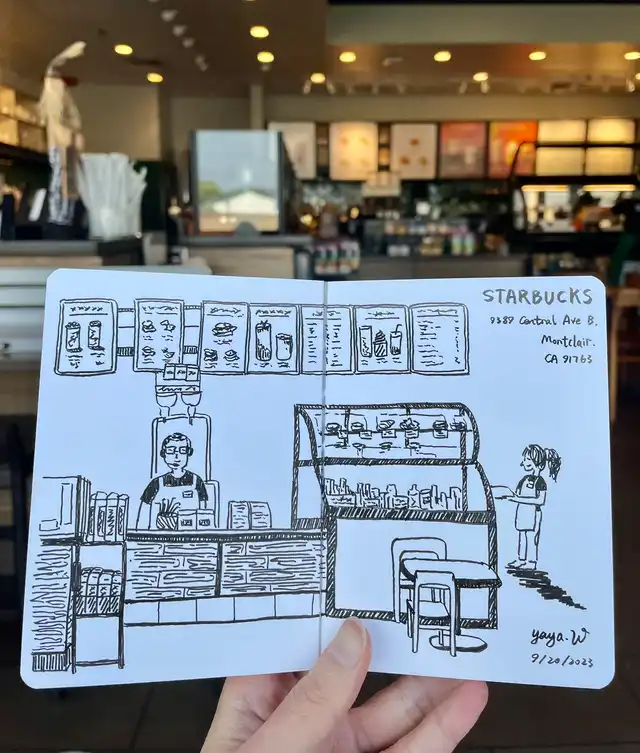 STARBUCKS
9387 Central Ave B,
Montclair.
CA 91763
yaya.W
9/20/2023